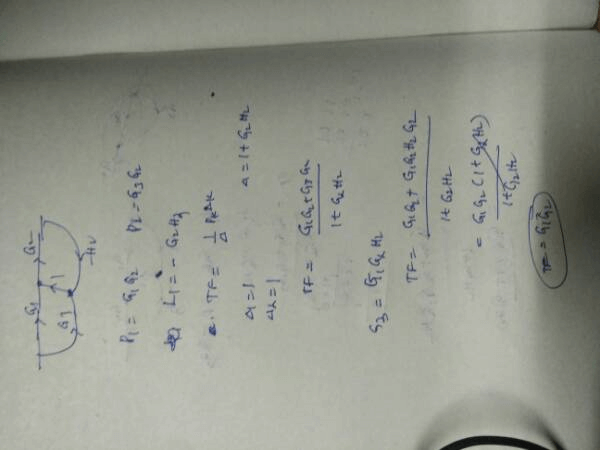 G1 G2
G3 1
-H2
P1 = G1G2 P2 = G3G2
L1 = - G2H2
TF = 1/Δ PkΔk
Δ1 = 1 Δ = 1 + G2H2
Δ2 = 1
TF = G1G2 + G3G2
1 + G2H2
G3 = G1G2H2
TF = G1G2 + G1G2H2G2
1 + G2H2
= G1G2 (1 + G2H2)
1 + G2H2
TF = G1G2